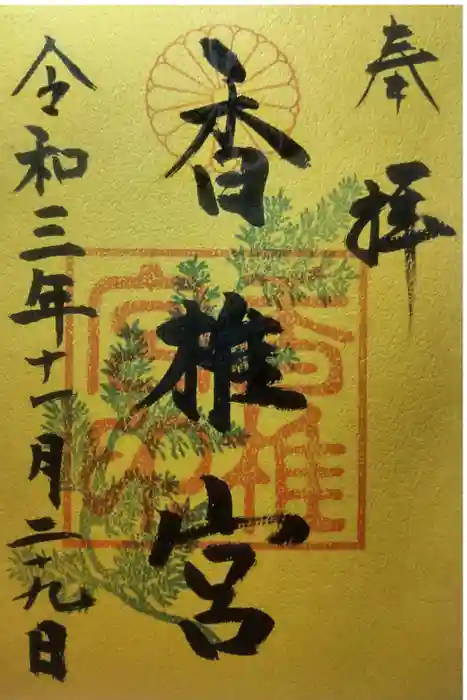 奉拝
香椎宮
令和三年十一月二十九日